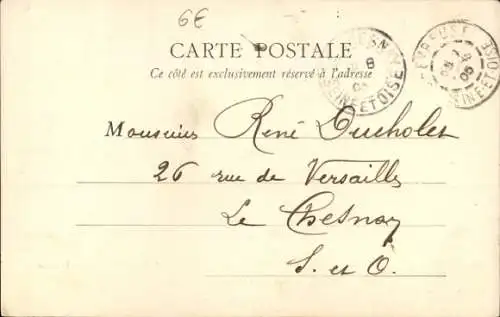 6€
CARTE POSTALE
Ce côté est exclusivement réservé à l'adresse
SEINE-ET-OISE
Monsieur René Ducholet
26 rue de Versailles
Le Chesnay
S. et O.